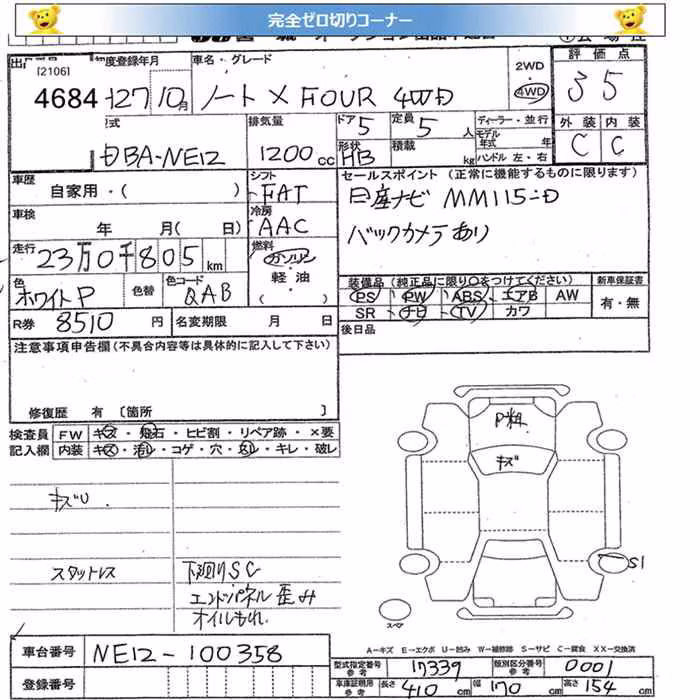 完全ゼロ切りコーナー
[2106]
初度登録年月
車名・グレード
2WD
4WD
評価点
4684
H27 10月
ノート X FOUR 4WD
35
型式
排気量
ドア 5
定員 5人
ディーラー・並行
モデル年式 年式
ハンドル 左・右
外装 内装
C C
DBA-NE12
1200cc
形状 HB
積載 kg
車歴
自家用・( )
シフト
FAT
セールスポイント (正常に機能するものに限ります)
日産ナビ MM115-D
バックカメラあり
車検
年 月( 日)
冷房
AAC
走行
23万0千805km
燃料
ガソリン
軽・油
( )
色
ホワイトP
色替
色コード
QAB
装備品 (純正品に限り○をつけてください)
新車保証書
PS PW ABS エアB AW
有・無
SR ナビ TV カワ
R券 8510円
名変期限 月 日
後日品
注意事項申告欄 (不具合内容等は具体的に記入して下さい)
修復歴 有 〔箇所 〕
検査員
記入欄
FW キズ・飛石・ヒビ割・リペア跡・×要
内装 キズ・汚レ・コゲ・穴・凹レ・キレ・破レ
キズU
スタットレス
下廻りSC
エンドパネル歪み
オイルもれ
P粧
キズ
S1
スペア
A-キズ E-エクボ U-凹み W-補修跡 S-サビ C-腐食 XX-交換済
車台番号 NE12-100358
登録番号
型式指定番号 参考 17339
類別区分番号 参考 0001
車庫証明用 参考 長さ 410cm 幅 170cm 高さ 154cm